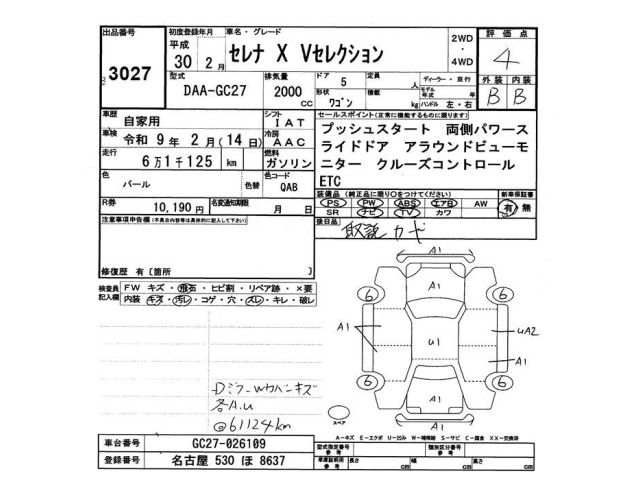 出品番号
3027
初度登録年月
平成
30 2 月
車名・グレード
セレナ X Vセレクション
2WD
・
4WD
評価点
4
型式
DAA-GC27
排気量
2000
CC
ドア
5
定員
人
形状
ワゴン
積載
kg
ディーラー・並行
モデル年式
年
ハンドル 左・右
外装 内装
B B
車歴
自家用
シフト
IAT
車検
令和 9 年 2 月 (14 日)
冷房
AAC
走行
6 万 1 千 125 km
燃料
ガソリン
色
パール
色替
色コード
QAB
R券
10,190 円
名変通知期限
月 日
セールスポイント(正常に機能するものに限ります)
プッシュスタート 両側パワース
ライドドア アラウンドビューモ
ニター クルーズコントロール
ETC
装備品(純正品に限り○をつけてください)
PS PW ABS エアB AW
SR ナビ TV カワ
新車保証書
有 無
後日品
取説 カード
注意事項申告欄(不具合内容等は具体的に記入して下さい)
修復歴 有〔箇所 〕
検査員
記入欄
FW キズ・飛石・ヒビ割・リペア跡・×要
内装 キズ・汚レ・コゲ・穴・スレ・キレ・破レ
Dミラーwカバーキズ
各A.U
@61124km
A1
6 A1 6
A1 U1 UA2
A1
6 6
A1
A1
スペア
A-キズ E-エクボ U-凹ミ W-補修跡 S-サビ C-腐食 XX-交換済
車台番号
GC27-026109
登録番号
名古屋 530 ほ 8637
型式指定番号
参考
類別区分番号
参考
車庫証明用
参考
長さ
cm
幅
cm
高さ
cm